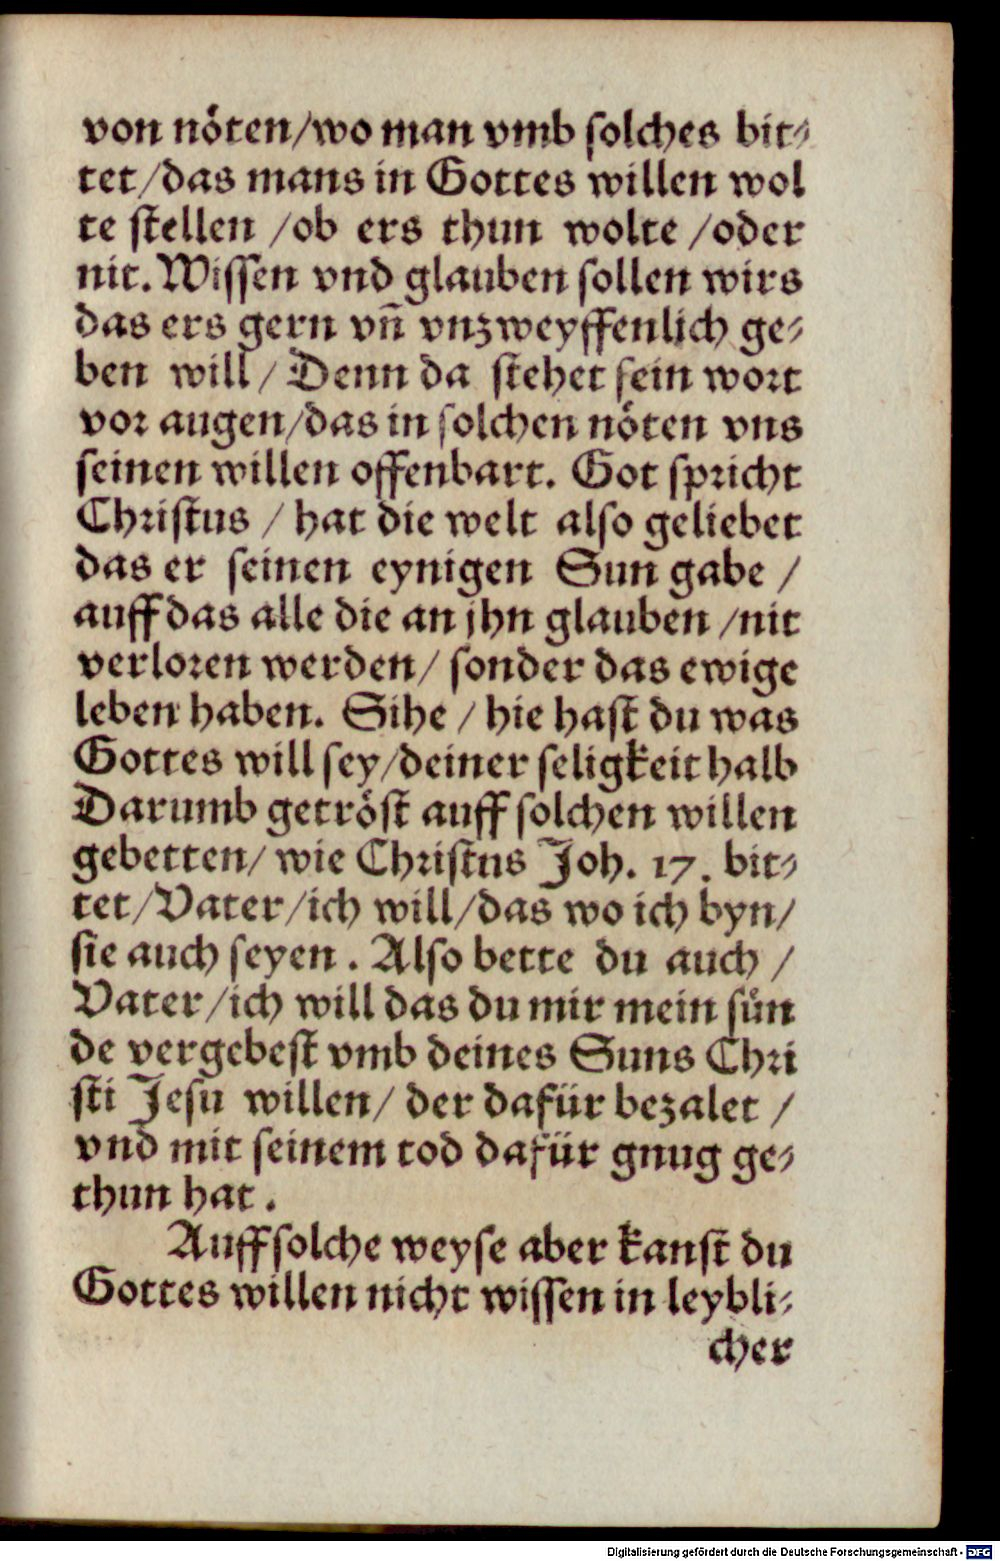 von nöten/wo man vmb solches bit⸗
tet/das mans in Gottes willen wol
te stellen /ob ers thun wolte /oder
nit. Wissen vnd glauben sollen wirs
das ers gern vn̄ vnzweyffenlich ge⸗
ben will/ Denn da stehet sein wort
vor augen/das in solchen nöten vns
seinen willen offenbart. Got spricht
Christus / hat die welt also geliebet
das er seinen eynigen Sun gabe /
auff das alle die an jhn glauben /nit
verloren werden/ sonder das ewige
leben haben. Sihe / hie hast du was
Gottes will sey/deiner seligkeit halb
Darumb getröst auff solchen willen
gebetten/ wie Christus Joh. 17. bit⸗
tet/Vater/ich will/das wo ich byn/
sie auch seyen. Also bette du auch /
Vater/ich will das du mir mein sün
de vergebest vmb deines Suns Chri
sti Jesu willen/ der dafür bezalet /
vnd mit seinem tod dafür gnug ge⸗
thun hat.
Auff solche weyse aber kanst du
Gottes willen nicht wissen in leybli⸗
cher
Digitalisierung gefördert durch die Deutsche Forschungsgemeinschaft - DFG